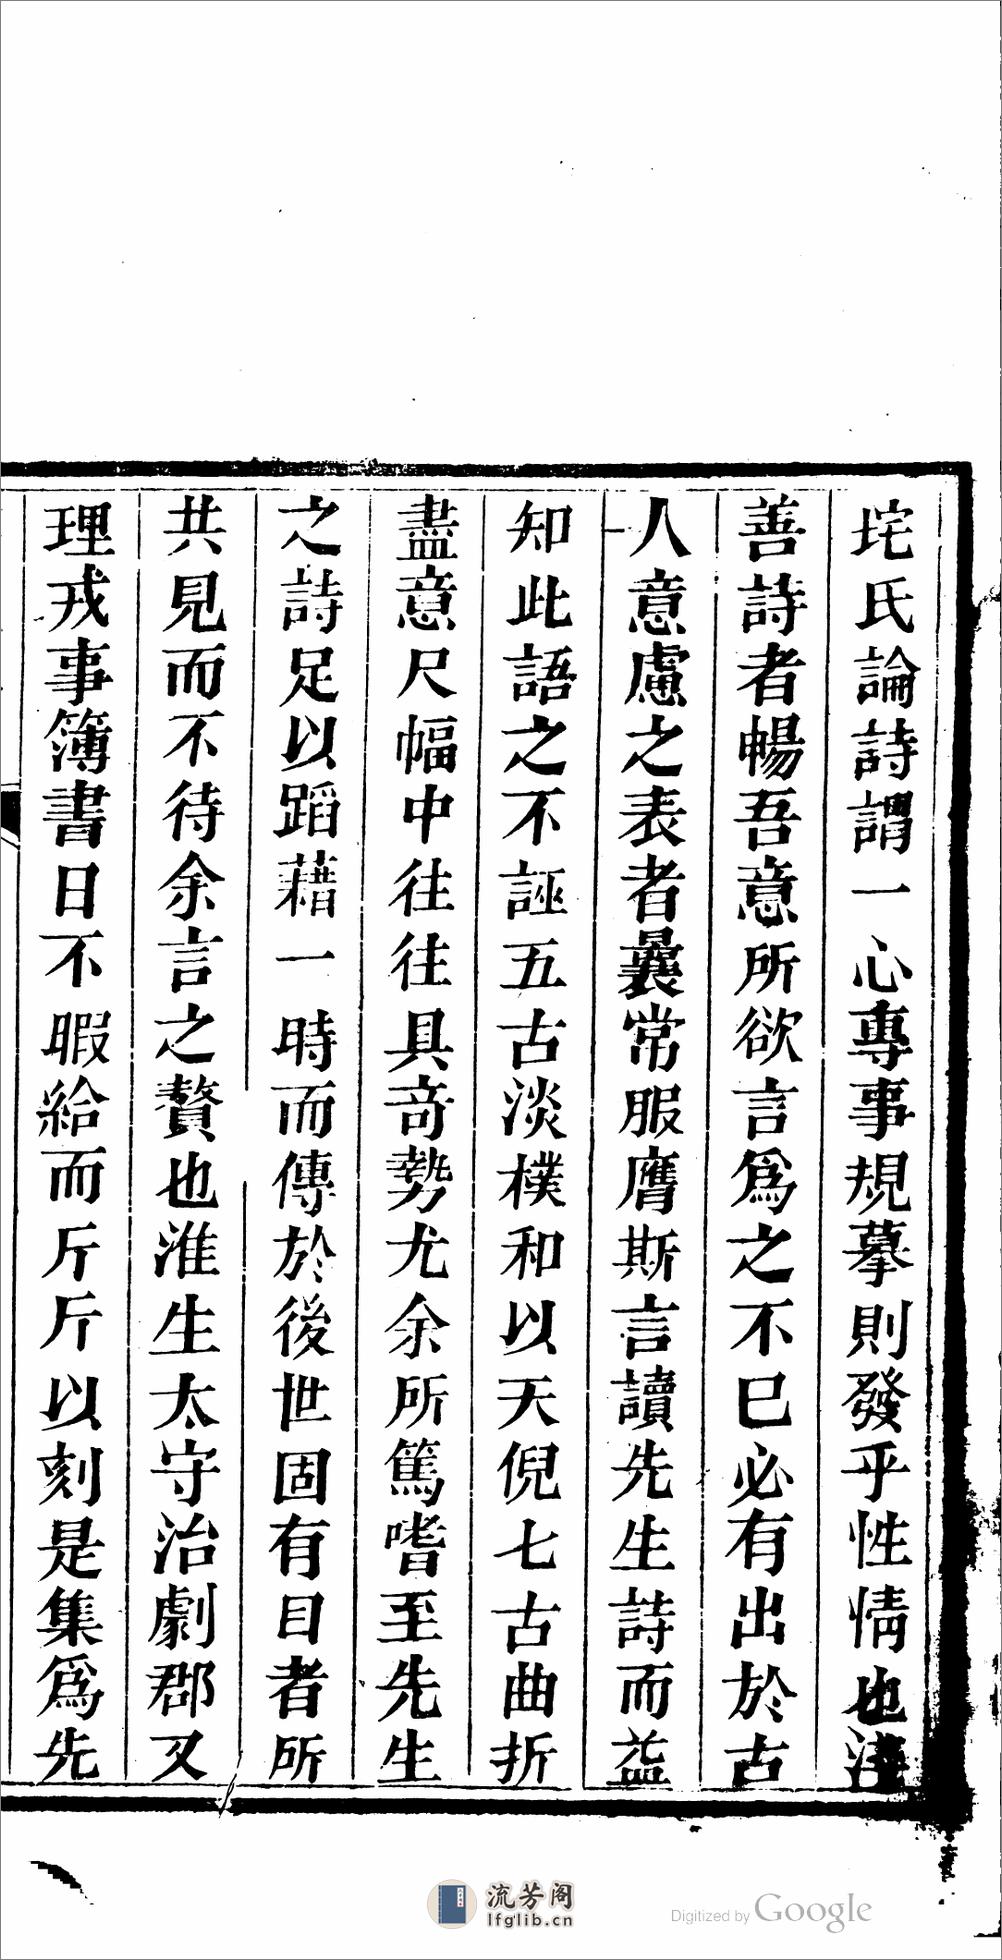 垞氏論詩謂一心專事規摹則發乎性情也淺
善詩者暢吾意所欲言爲之不已必有出於古
人意慮之表者曩常服膺斯言讀先生詩而益
知此語之不誣五古淡樸和以天倪七古曲折
盡意尺幅中往往具奇勢尤余所篤嗜至先生
之詩足以蹈藉一時而傳於後世固有目者所
共見而不待余言之贅也淮生太守治劇郡又
理戎事簿書日不暇給而斤斤以刻是集爲先
流芳阁
lfglib.cn
Digitized by Google